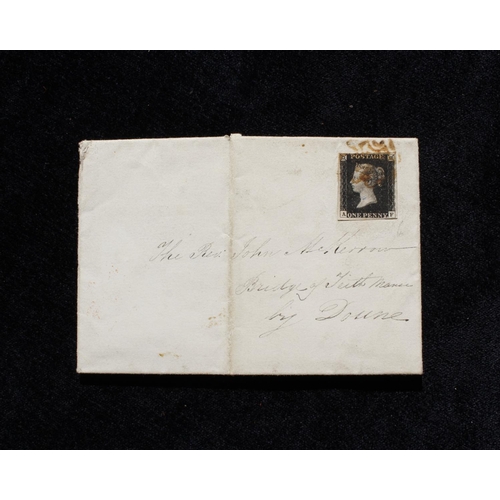 POSTAGE
A F
ONE PENNY
The Rev. John McKerrow
Bridge of Teith Manse
by Doune